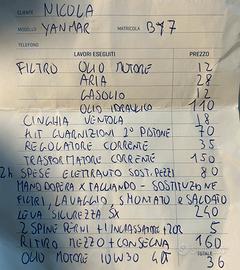 CLIENTE NICOLA
MODELLO YANMAR MATRICOLA BY7
TELEFONO
LAVORI ESEGUITI PREZZO
FILTRO OLIO MOTORE 12
ARIA 28
GASOLIO 12
OLIO IDRAULICO 110
CINGHIA VENTOLA 18
KIT GUARNIZIONI 2° PISTONE 70
REGOLATORE CORRENTE 35
TRASPORMATORE CORRENTE 150
2h SPESE ELETTRAUTO SOST. PEZZI 80
MANODOPERA X TAGLIANDO - SOSTITUZIONE
FILTRI, LAVAGGIO, SMONTATO E SALDATO
LEVA SICUREZZA SX 240
2 SPINE PERNI + INGRASSATORE + 5
RITIRO MEZZO + CONSEGNA 160
TOTALE
OLIO MOTORE 10W30 4LT 36